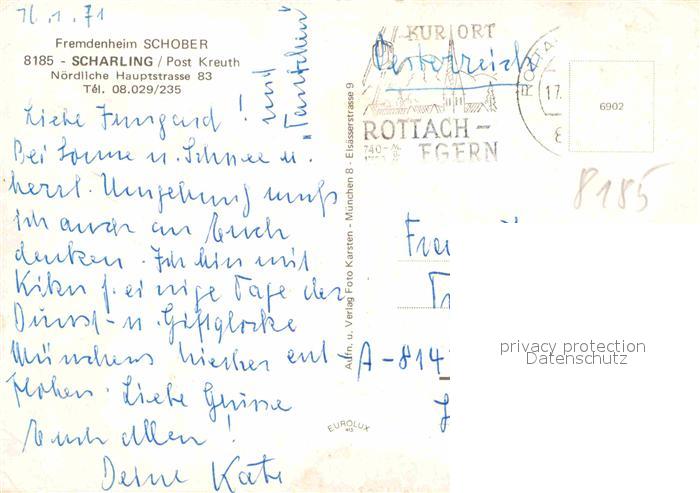 16.1.71
Fremdenheim SCHOBER
8185 - SCHARLING / Post Kreuth
Nördliche Hauptstrasse 83
Tél. 08.029/235
Liebe Irmgard!
und
"Tantchen"
Bei Sonne u. Schnee u.
herrl. Umgebung muß
ich auch an Euch
denken. Ich bin mit
f. einige Tage der
Dunst- u. Giftglocke
Münchens hierher ent-
flohen. Liebe Grüsse
Euch allen!
Deine
Aufn. u. Verlag Foto Karsten - München 8 - Elsässerstrasse 9
EUROLUX
KURORT
ROTTACH-
EGERN
Österreich
ROTTA
17.
6902
8185
A-814
privacy protection
Datenschutz